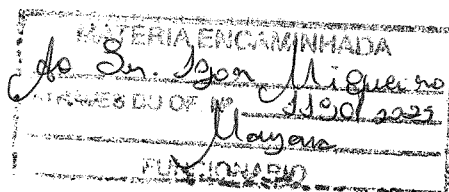 MATERIA ENCAMINHADA
Ao Sr. Igor Migueiro
ATRAVES DO OF. Nº 1190
Mayara
FUNCIONARIO